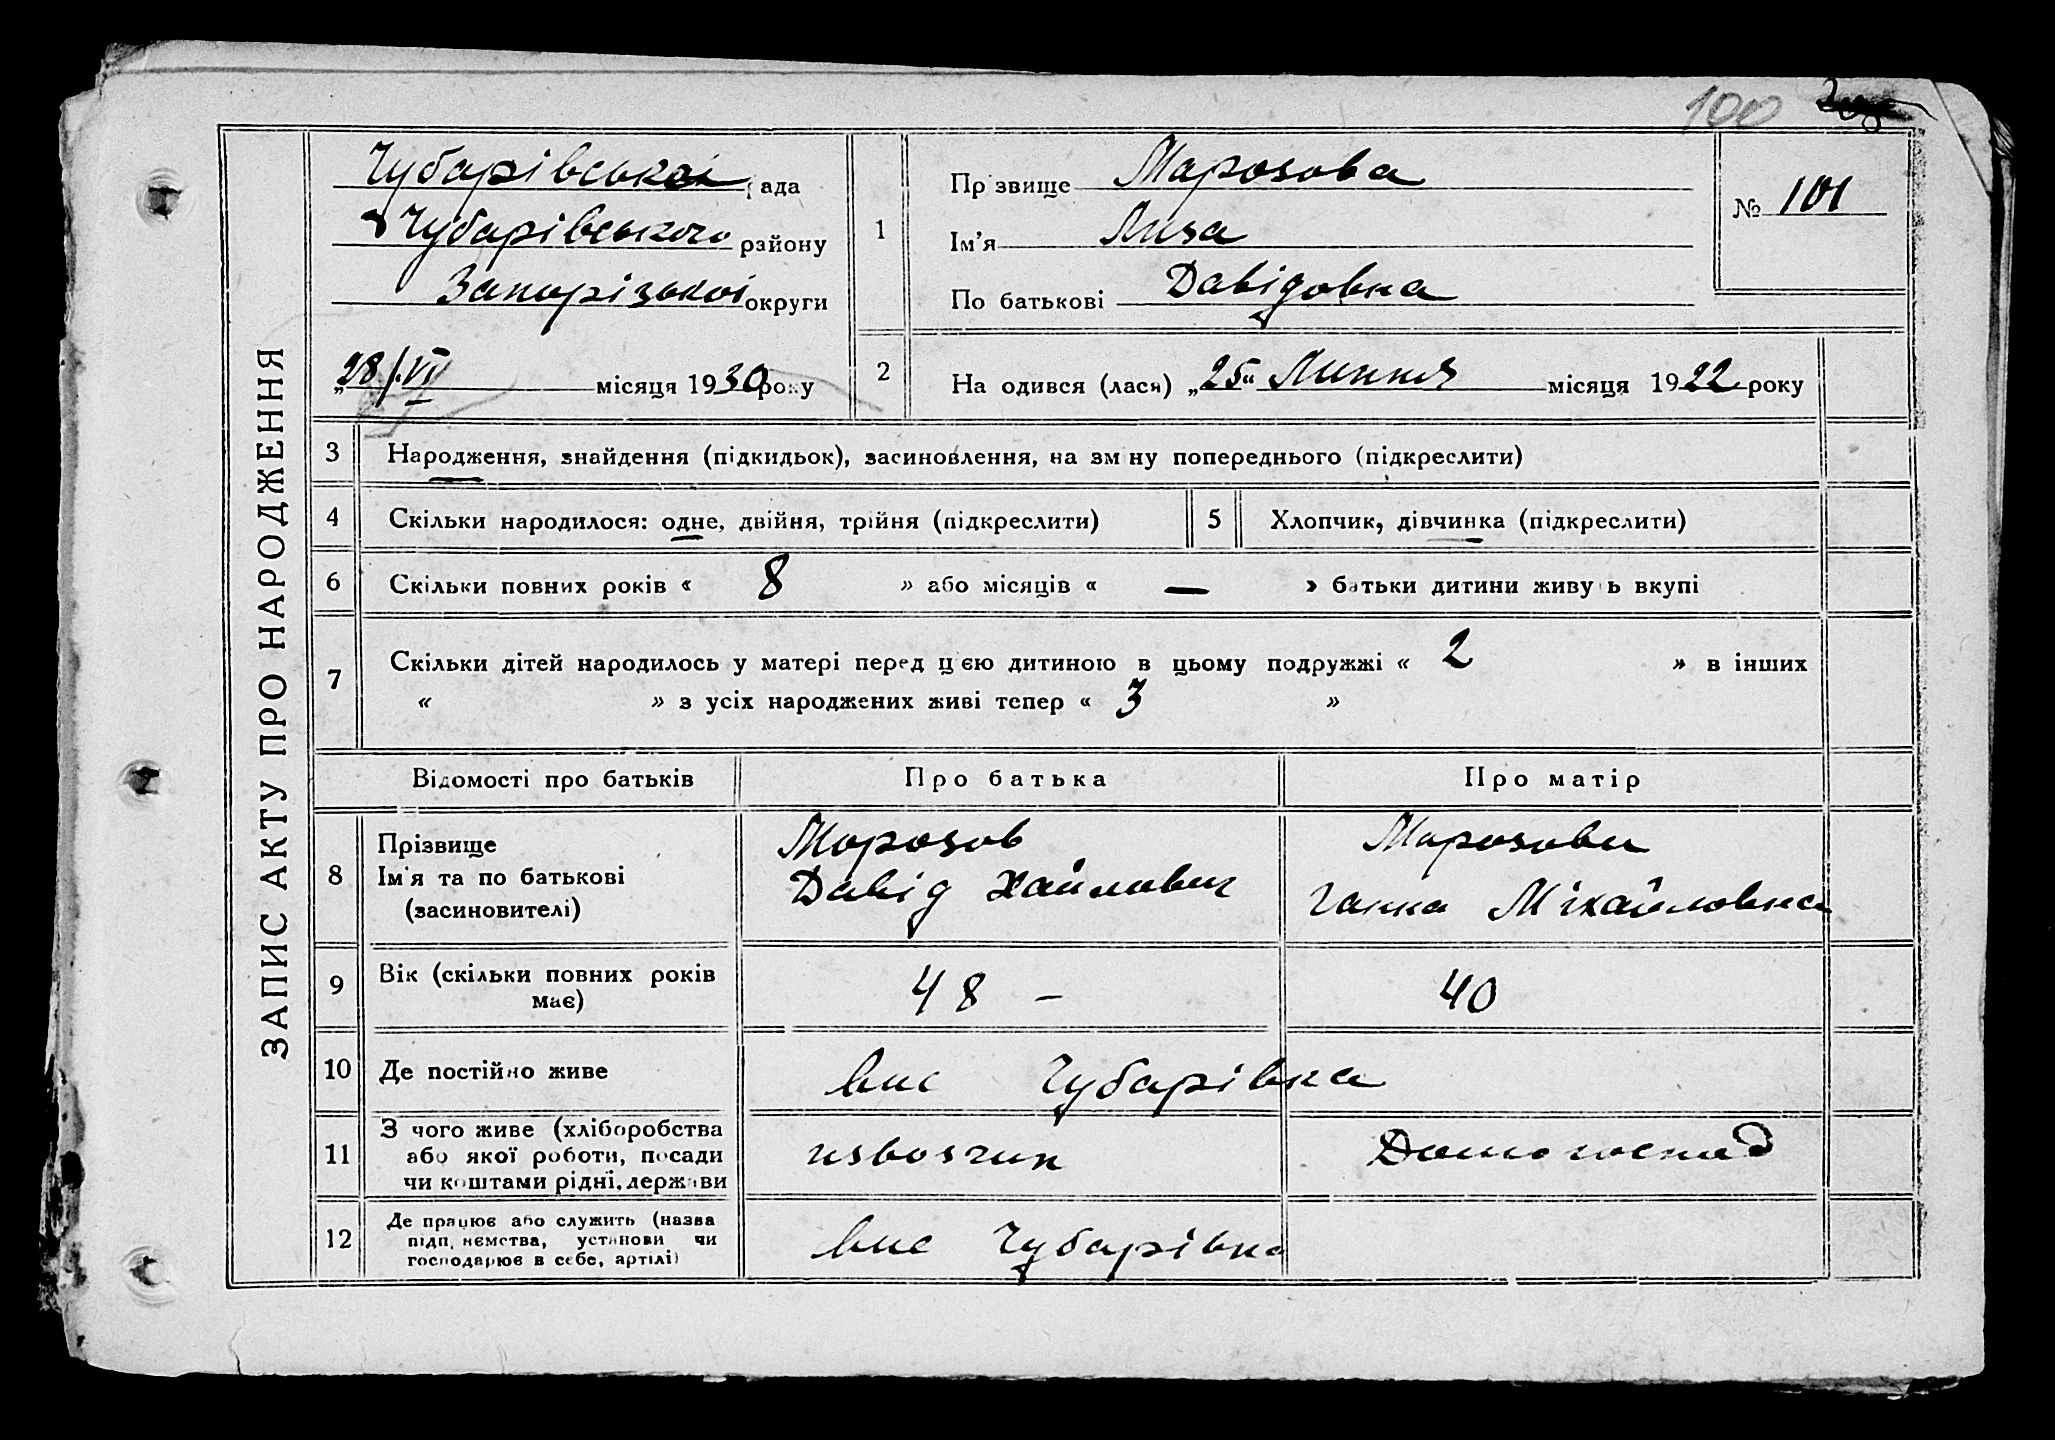 100
ЗАПИС АКТУ ПРО НАРОДЖЕННЯ
Чубарівської рада
Чубарівського району
Запорізької округи
„28/VI місяця 1930 року
1
Прізвище Марозова
Ім’я Лиза
По батькові Давідовна
№ 101
2
На одився (лася) „25“ Липня місяця 1922 року
3 Народження, знайдення (підкидьок), засиновлення, на зміну попереднього (підкреслити)
4 Скільки народилося: одне, двійня, трійня (підкреслити) 5 Хлопчик, дівчинка (підкреслити)
6 Скільки повних років « 8 » або місяців « — » батьки дитини живуть вкупі
7 Скільки дітей народилось у матері перед цією дитиною в цьому подружжі « 2 » в інших
« » з усіх народжених живі тепер « 3 »
Відомості про батьків Про батька Про матір
8 Прізвище
Ім’я та по батькові
(засиновителі)
Морозов
Давід Хаймович
Марозова
Ганна Міхайловна
9 Вік (скільки повних років
має)
48 – 40
10 Де постійно живе вис Чубарівка
11 З чого живе (хліборобства
або якої роботи, посади
чи коштами рідні, держави
извозчик Домогоспод
12 Де працює або служить (назва
підп, ємства, установи чи
господарює в себе, артілі)
вис Чубарівка